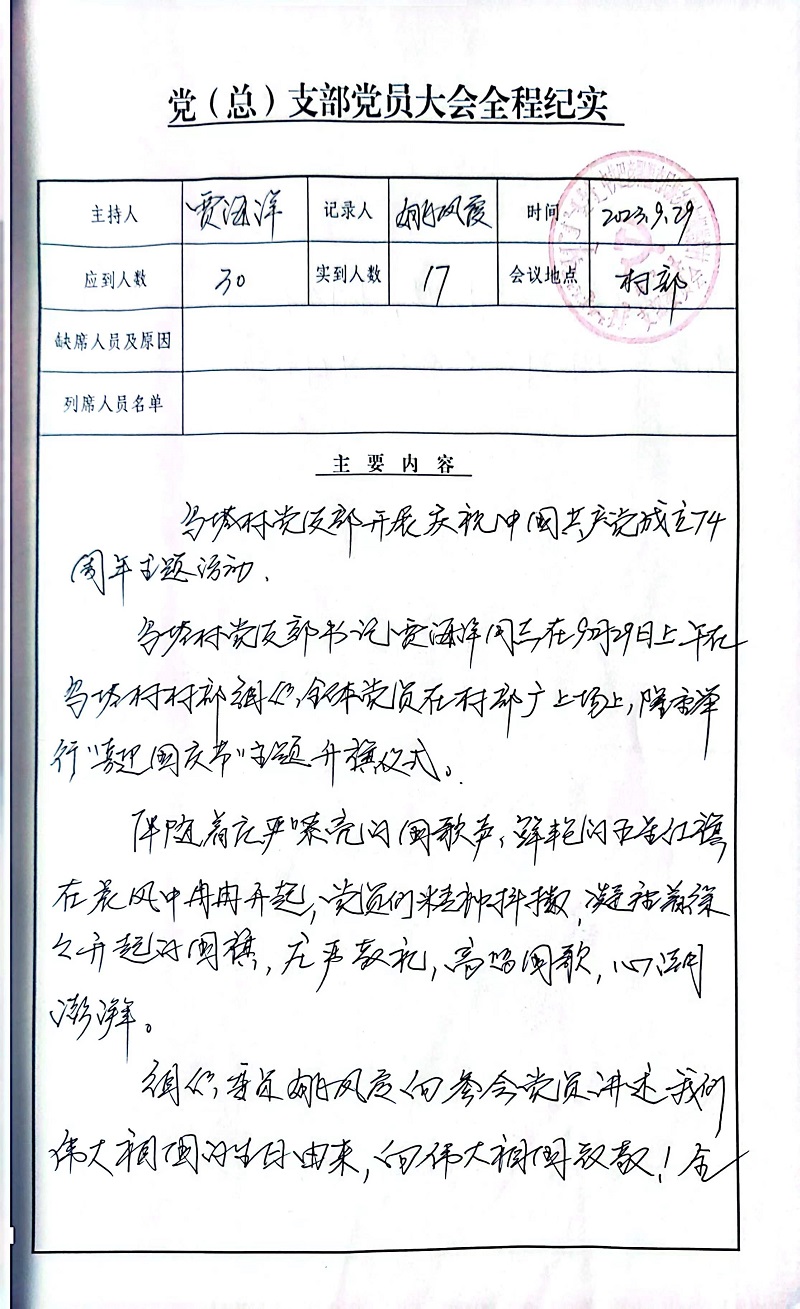 党（总）支部党员大会全程纪实
主持人 贾海洋 记录人 姚凤霞 时间 2023.9.29
应到人数 30 实到人数 17 会议地点 村部
缺席人员及原因
列席人员名单
主要内容
乌塔村党支部开展庆祝中国共产党成立74
周年主题活动.
乌塔村党支部书记贾海洋同志在9月29日上午在
乌塔村村部组织全体党员在村部广上场上,隆重举
行"喜迎国庆节"主题升旗仪式。
伴随着庄严嘹亮的国歌声,鲜艳的五星红旗
在晨风中冉冉升起,党员们精神抖擞,凝视着徐
久升起的国旗,庄严敬礼,高唱国歌,心潮
澎湃。
组织委员姚凤霞向参会党员讲述我们
伟大祖国的生日由来,向伟大祖国致敬!全